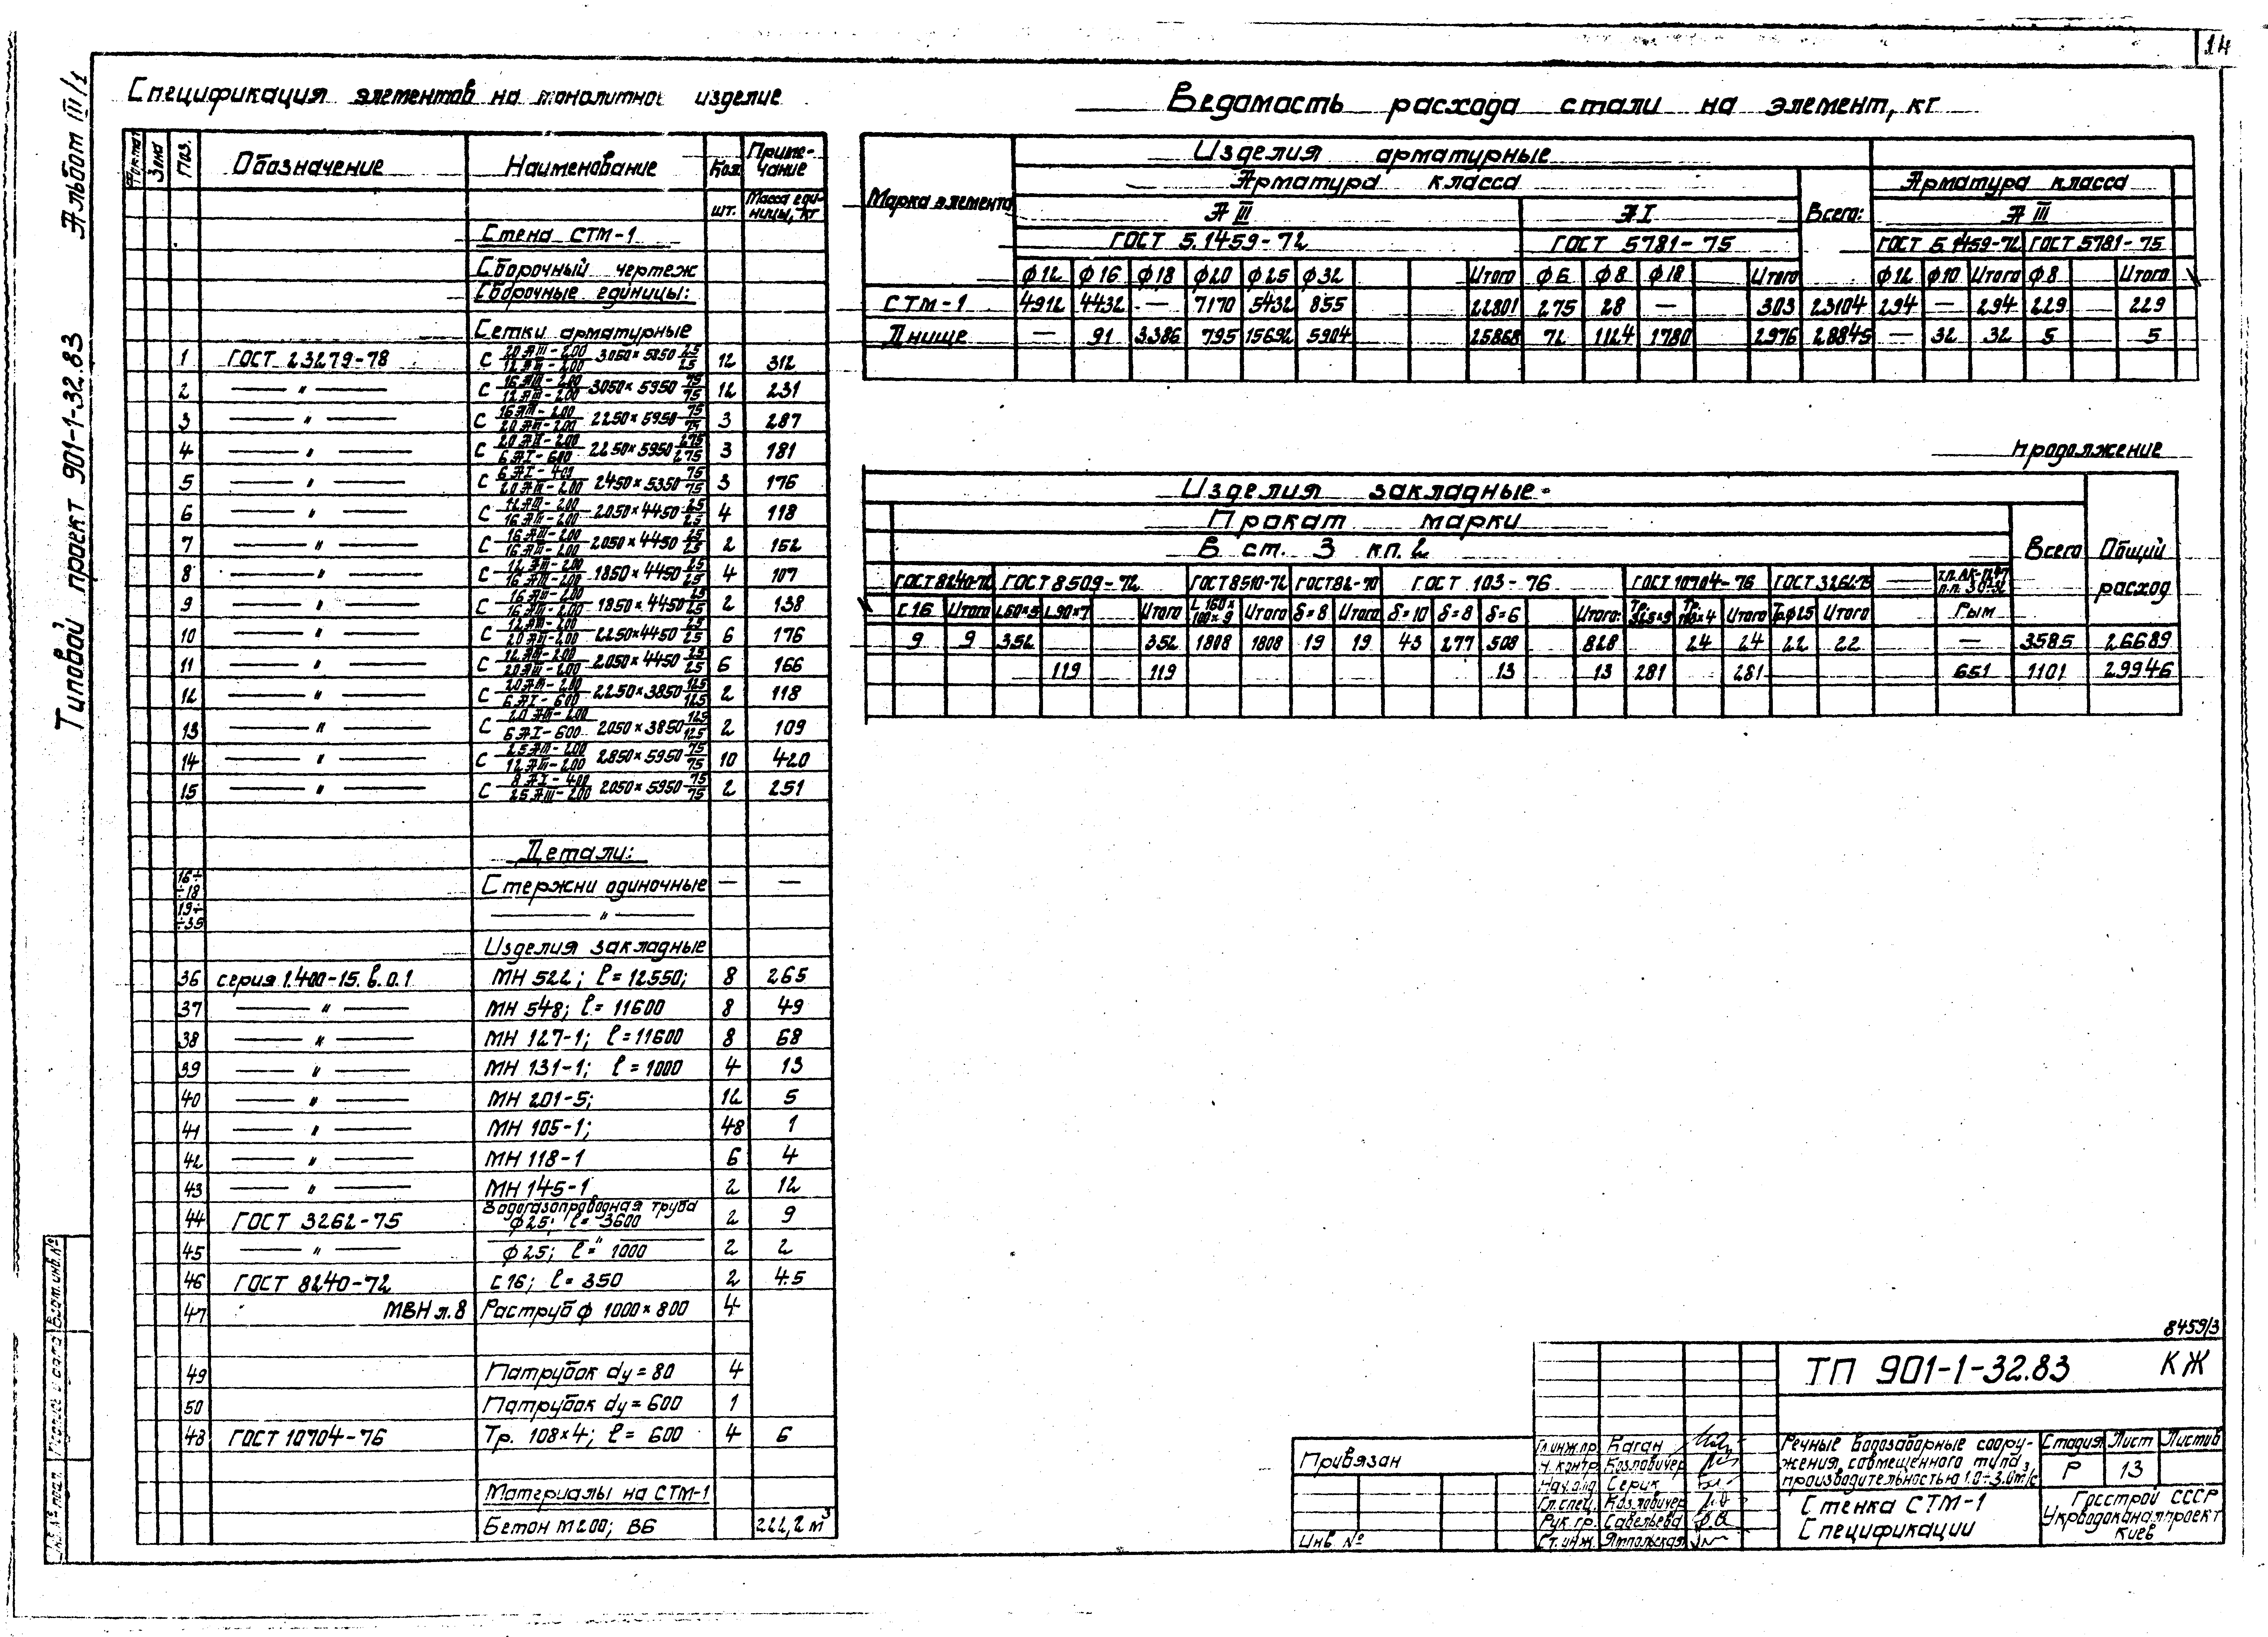 14
Альбом III/1
Типовой проект 901-1-32.83
Спецификация элементов на монолитное изделие
Формат Зона Поз. Обозначение Наименование Кол. шт. Примечание Масса единицы, кг
Стена СТМ-1
Сборочный чертеж
Сборочные единицы:
Сетки арматурные
1 ГОСТ 23279-78 С 20АIII-200/12АIII-200 3050×5950 25/25 12 312
2 — " — С 16АIII-200/12АIII-200 3050×5950 75/75 12 231
3 — " — С 16АIII-200/20АIII-200 2250×5950 75/75 3 287
4 — " — С 20АIII-200/6АI-600 2250×5950 275/275 3 181
5 — " — С 6АI-400/20АIII-200 2450×5350 75/75 3 176
6 — " — С 12АIII-200/16АIII-200 2050×4450 25/25 4 118
7 — " — С 16АIII-200/16АIII-200 2050×4450 25/25 2 152
8 — " — С 12АIII-200/16АIII-200 1850×4450 25/25 4 107
9 — " — С 16АIII-200/16АIII-200 1850×4450 25/25 2 138
10 — " — С 12АIII-200/20АIII-200 2250×4450 25/25 6 176
11 — " — С 12АIII-200/20АIII-200 2050×4450 25/25 6 166
12 — " — С 20АIII-200/6АI-600 2250×3850 125/125 2 118
13 — " — С 20АIII-200/6АI-600 2050×3850 125/125 2 109
14 — " — С 25АIII-200/12АIII-200 2850×5950 75/75 10 420
15 — " — С 8АI-400/25АIII-200 2050×5950 75/75 2 251
Детали:
16÷÷18 Стержни одиночные — —
19÷÷35 — " —
Изделия закладные
36 серия 1.400-15. в.0.1 МН 522; ℓ=12550; 8 265
37 — " — МН 548; ℓ=11600 8 49
38 — " — МН 127-1; ℓ=11600 8 68
39 — " — МН 131-1; ℓ=1000 4 13
40 — " — МН 201-5; 12 5
41 — " — МН 105-1; 48 1
42 — " — МН 118-1 6 4
43 — " — МН 145-1 2 12
44 ГОСТ 3262-75 Водогазопроводная труба ф25; ℓ=3600 2 9
45 — " — — " — ф25; ℓ=1000 2 2
46 ГОСТ 8240-72 С16; ℓ=350 2 4.5
47 МВН л.8 Раструб ф 1000×800 4
49 Патрубок dу=80 4
50 Патрубок dу=600 1
48 ГОСТ 10704-76 Тр. 108×4; ℓ=600 4 6
Материалы на СТМ-1
Бетон М200; В6 222,2 м³
Ведомость расхода стали на элемент, кг
Марка элемента Изделия арматурные
Арматура класса Всего: Арматура класса
А III А I А III
ГОСТ 5.1459-72 ГОСТ 5781-75 ГОСТ 5.1459-72 ГОСТ 5781-75
ф12 ф16 ф18 ф20 ф25 ф32 Итого ф6 ф8 ф18 Итого ф12 ф10 Итого ф8 Итого
СТМ-1 4912 4432 — 7170 5432 855 22801 275 28 — 303 23104 294 — 294 229 229
Днище — 91 3386 795 15692 5904 25868 72 1124 1780 2976 28845 — 32 32 5 5
продолжение
Изделия закладные
Прокат марки Всего Общий расход
В ст. 3 кп. 2
ГОСТ 8240-72 ГОСТ 8509-72 ГОСТ 8510-72 ГОСТ 82-70 ГОСТ 103-76 ГОСТ 10704-76 ГОСТ 3262-75
С16 Итого L60×5 L90×7 Итого L160×100×9 Итого δ=8 Итого δ=10 δ=8 δ=6 Итого: Тр. 325×9 Тр. 108×4 Итого Тр.ф25 Итого Рым
9 9 352 352 1808 1808 19 19 43 277 508 828 24 24 22 22 — 3585 26689
119 119 13 13 281 281 651 1101 29946
8459/3
ТП 901-1-32.83 КЖ
Привязан
Инв №
Гл.инж.пр. Каган
Н.контр. Козловичер
Нач.отд. Серик
Гл.спец. Козловичер
Рук.гр. Савельева
Ст.инж. Ямпольская
Речные водозаборные сооружения совмещенного типа, производительностью 1.0÷3.0м³/с
Стадия Лист Листов
Р 13
Стенка СТМ-1
Спецификации
Госстрой СССР
Укрводоканалпроект
Киев
Взам.инв.№
Подпись и дата
Инв.№ подл.